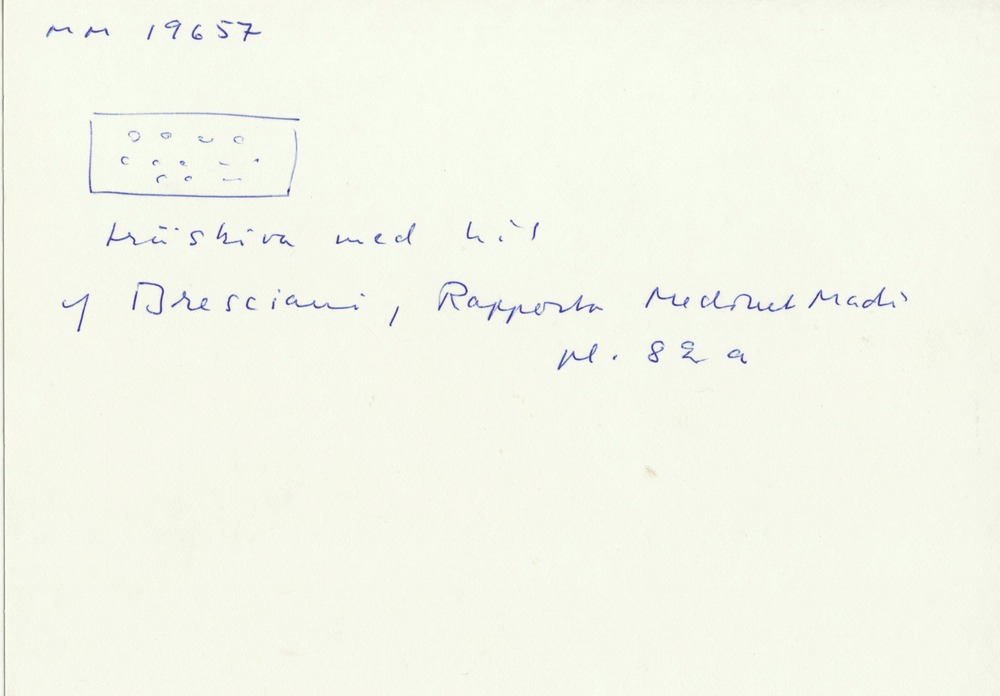 MM 19657
träskiva med hål
cf Bresciani, Rapporto Medinet Madi
pl. 82 a